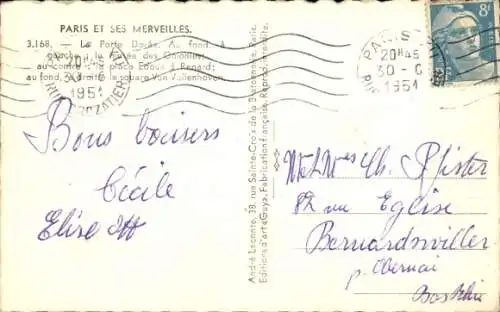 PARIS ET SES MERVEILLES.
3.168. — La Porte Dorée. Au fond, à
gauche, le Musée des Colonies;
au centre, la place Edouard Renard;
au fond, à droite, le square Van Vollenhoven.
PARIS
20H45
30-6
1951
RUE CROZATIER
PARIS
20H45
30-6
1951
RUE
8F
Bons baisers
Cécile
Elise
André Leconte, 38, rue Sainte-Croix de la Bretonnerie, Paris.
Editions d'art "Guy". Fabrication française. Reproduction interdite.
Ch. Pfister
rue Eglise
Bernardsviller
p. Obernai
Bas Rhin